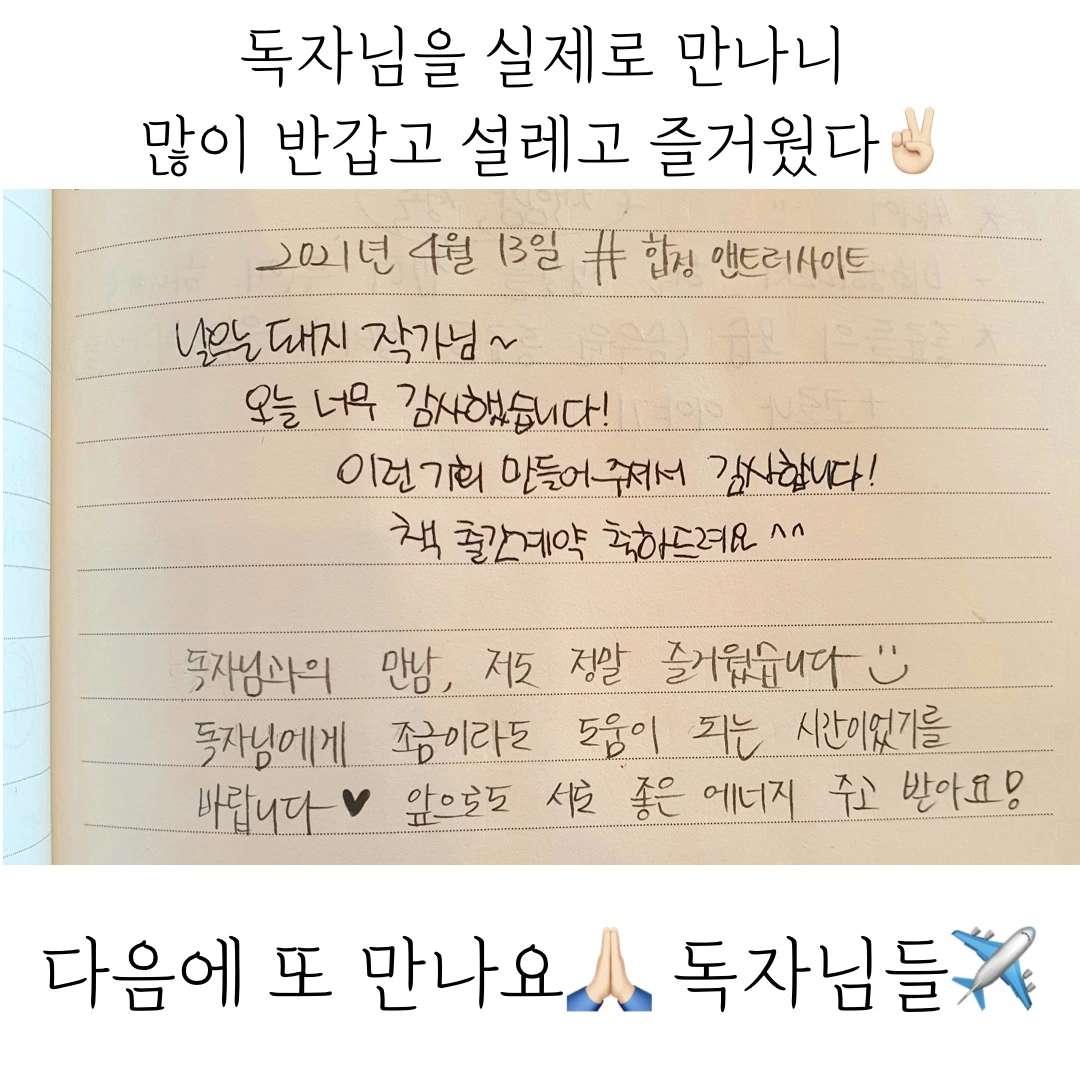 독자님을 실제로 만나니
많이 반갑고 설레고 즐거웠다✌🏻
2021년 4월 13일 # 합정 앤트러사이트
날으는 돼지 작가님~
오늘 너무 감사했습니다!
이런 기회 만들어주셔서 감사합니다!
책 출간계약 축하드려요^^
독자님과의 만남, 저도 정말 즐거웠습니다 :)
독자님에게 조금이라도 도움이 되는 시간이었기를
바랍니다♥ 앞으로도 서로 좋은 에너지 주고 받아요!
다음에 또 만나요🙏🏻 독자님들✈️